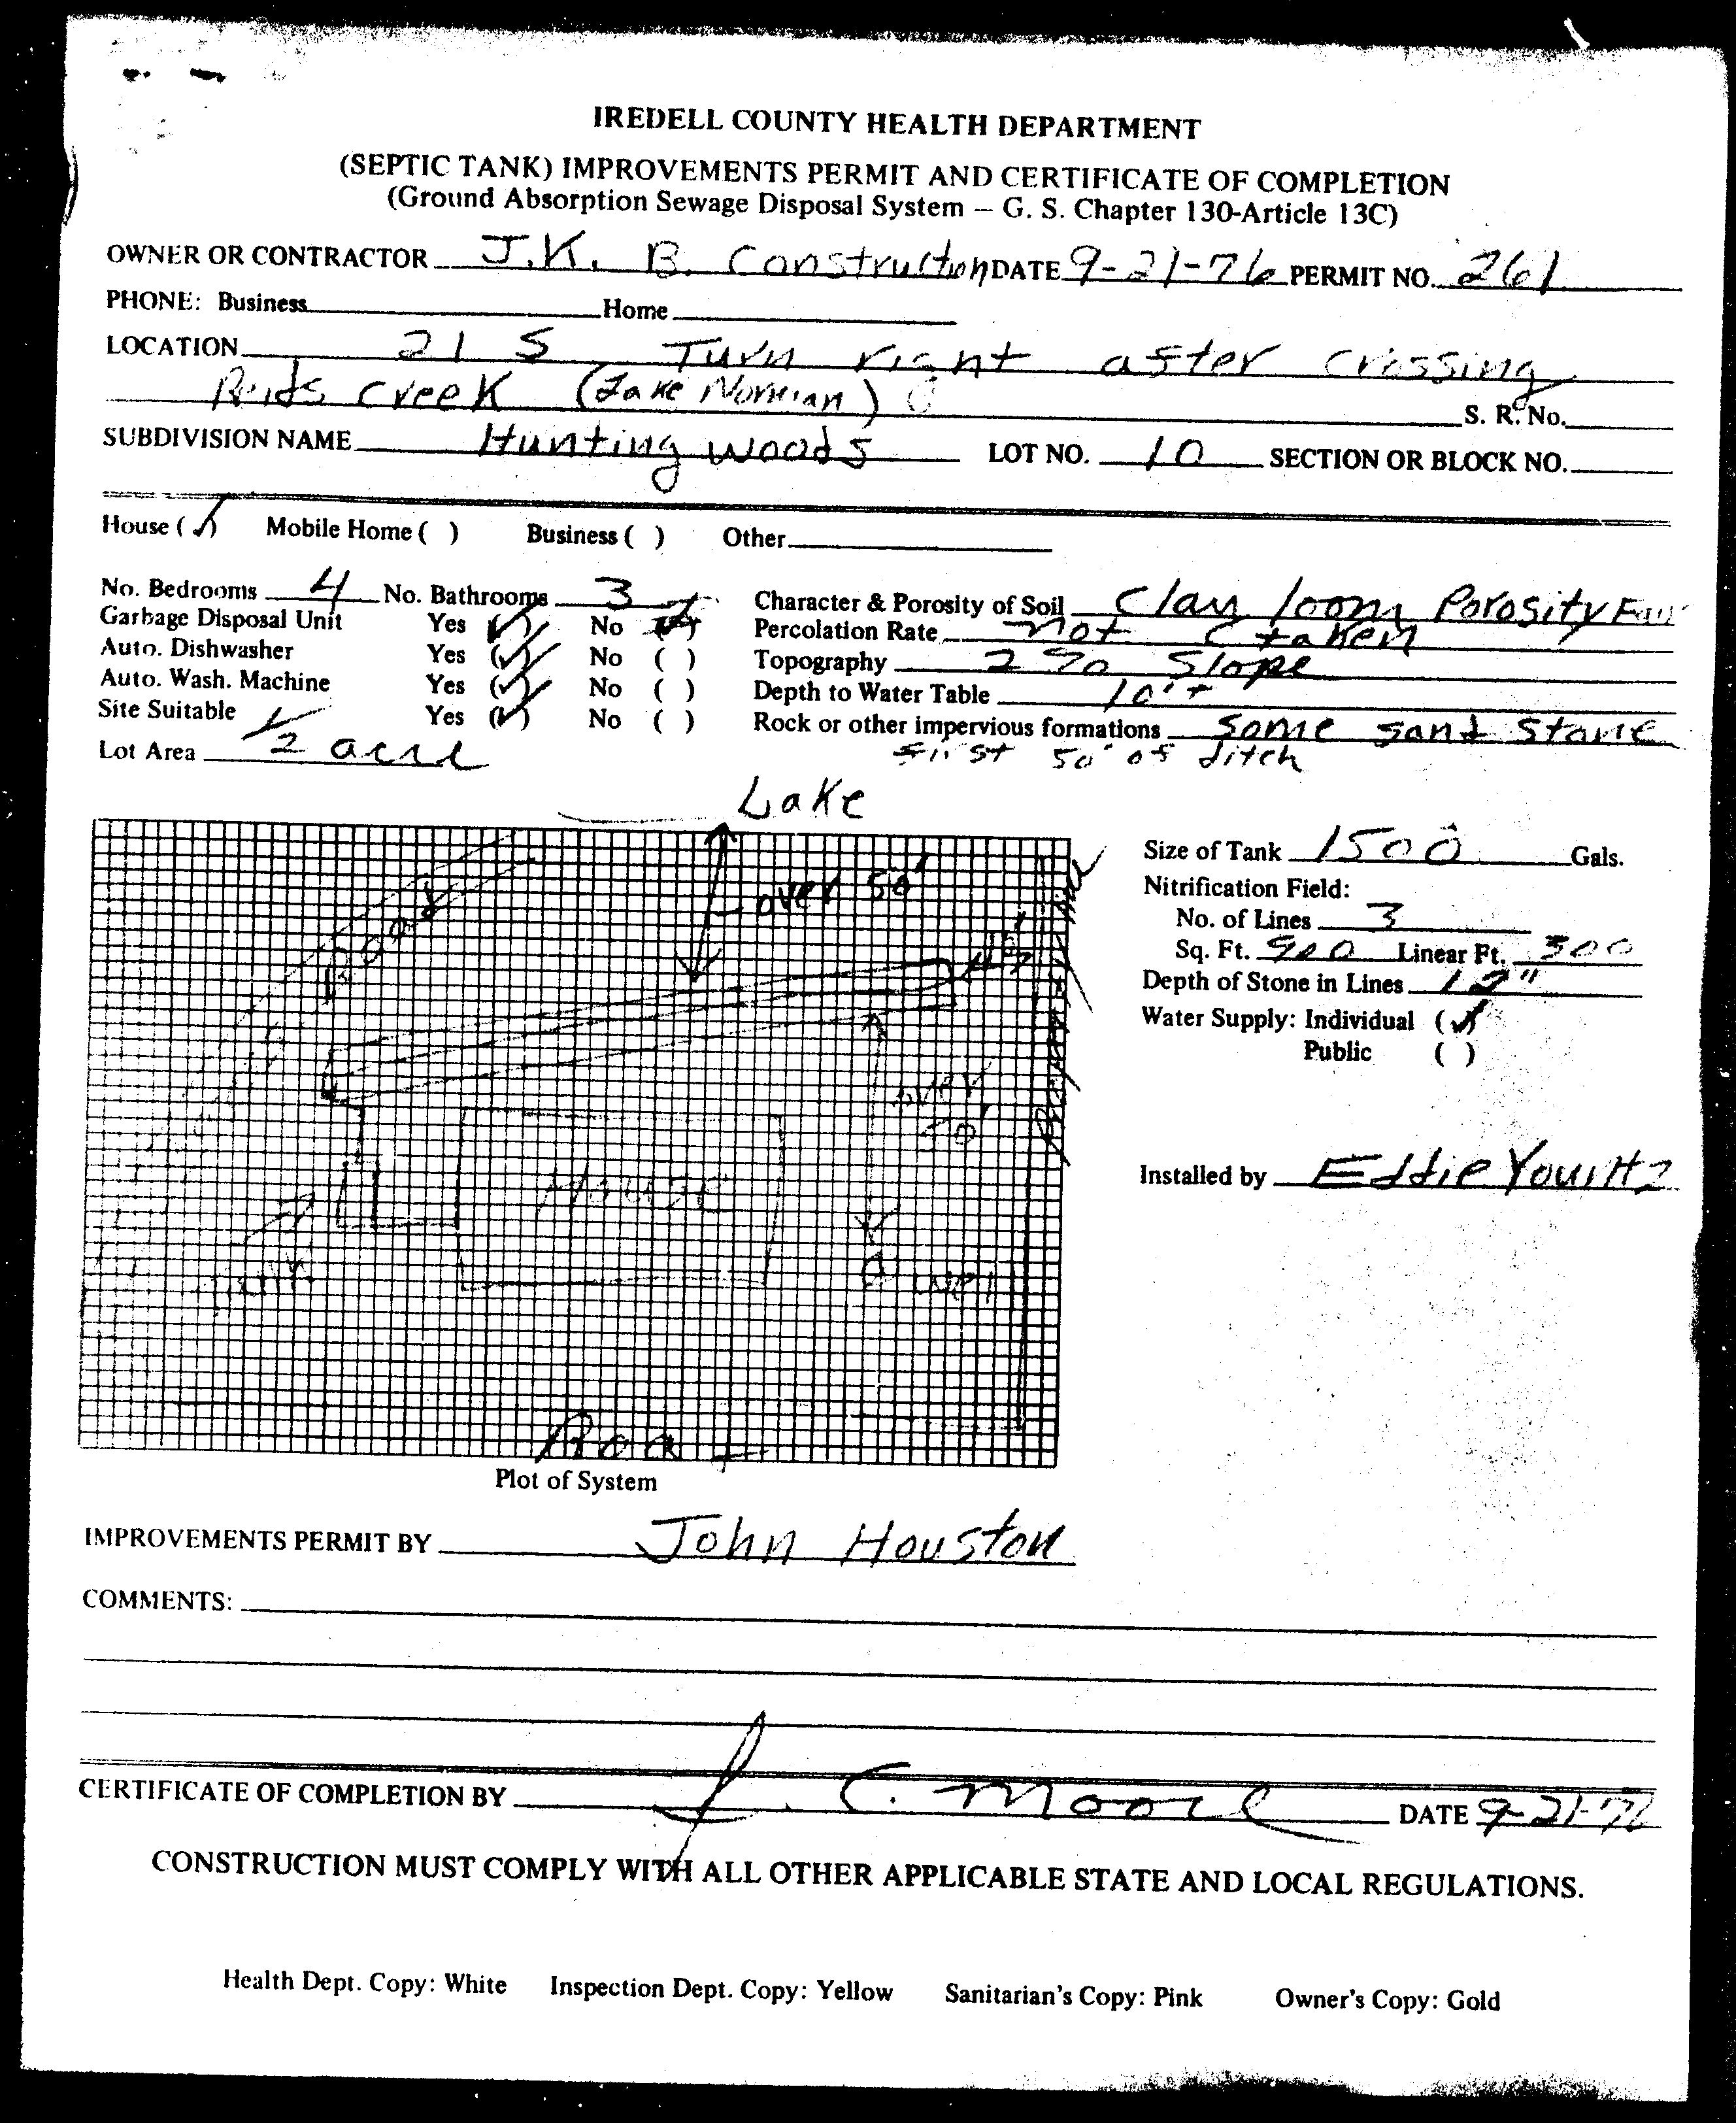 IREDELL COUNTY HEALTH DEPARTMENT
(SEPTIC TANK) IMPROVEMENTS PERMIT AND CERTIFICATE OF COMPLETION
(Ground Absorption Sewage Disposal System – G. S. Chapter 130-Article 13C)
OWNER OR CONTRACTOR J.K. B. Construction DATE 9-21-76 PERMIT NO. 261
PHONE: Business Home
LOCATION 21 S Turn right after crossing
Reids Creek (Lake Norman) S. R. No.
SUBDIVISION NAME Hunting Woods LOT NO. 10 SECTION OR BLOCK NO.
House (✓) Mobile Home ( ) Business ( ) Other
No. Bedrooms 4 No. Bathrooms 3 Character & Porosity of Soil Clay loom Porosity Fair
Garbage Disposal Unit Yes (✓) No Percolation Rate not taken
Auto. Dishwasher Yes (✓) No ( ) Topography 2 % Slope
Auto. Wash. Machine Yes (✓) No ( ) Depth to Water Table 10'+
Site Suitable Yes (✓) No ( ) Rock or other impervious formations some sand stone
Lot Area 1/2 acre first 50' of ditch
Lake
over 50'
Road
House
Tank
Well
Road
Size of Tank 1500 Gals.
Nitrification Field:
No. of Lines 3
Sq. Ft. 900 Linear Ft. 300
Depth of Stone in Lines 12"
Water Supply: Individual (✓)
Public ( )
Installed by Eddie
Plot of System
IMPROVEMENTS PERMIT BY John Houston
COMMENTS:
CERTIFICATE OF COMPLETION BY J. C. Moore DATE 9-21-76
CONSTRUCTION MUST COMPLY WITH ALL OTHER APPLICABLE STATE AND LOCAL REGULATIONS.
Health Dept. Copy: White Inspection Dept. Copy: Yellow Sanitarian's Copy: Pink Owner's Copy: Gold